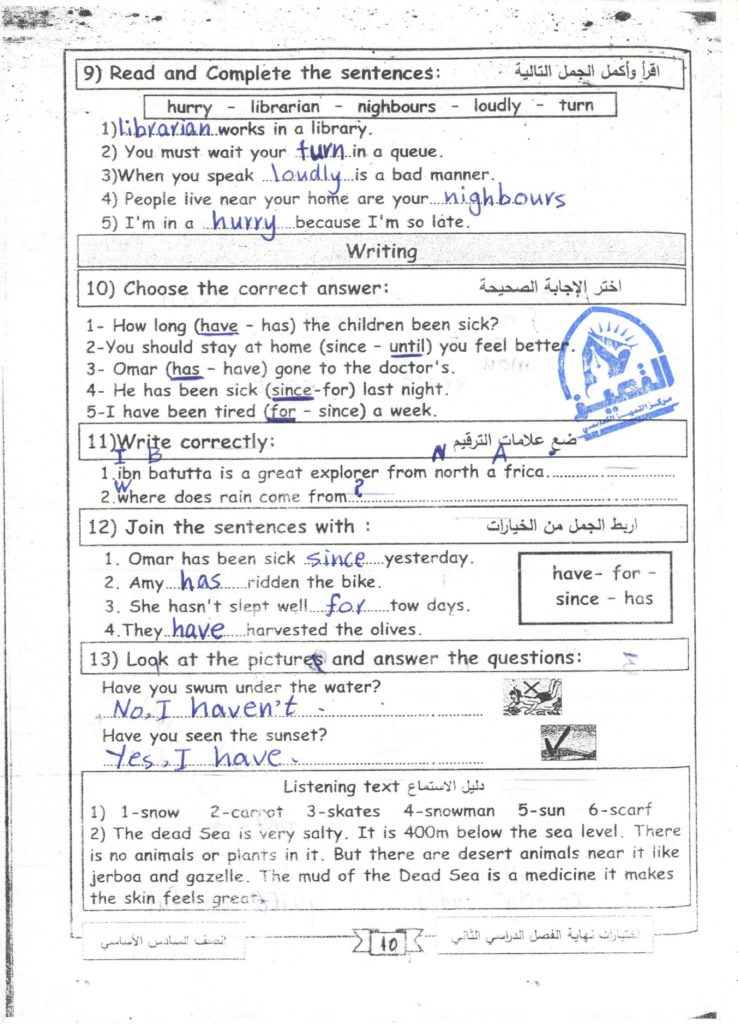 9) Read and Complete the sentences: اقرأ وأكمل الجمل التالية
hurry - librarian - nighbours - loudly - turn
1)librarian works in a library.
2) You must wait your turn in a queue.
3)When you speak loudly is a bad manner.
4) People live near your home are your nighbours
5) I'm in a hurry because I'm so late.
Writing
10) Choose the correct answer: اختر الإجابة الصحيحة
1- How long (have - has) the children been sick?
2-You should stay at home (since - until) you feel better.
3- Omar (has - have) gone to the doctor's.
4- He has been sick (since-for) last night.
5-I have been tired (for - since) a week.
11)Write correctly: ضع علامات الترقيم
I B N A
1.ibn batutta is a great explorer from north a frica.
W
2.where does rain come from?
12) Join the sentences with : اربط الجمل من الخيارات
1. Omar has been sick since yesterday.
2. Amy has ridden the bike.
3. She hasn't slept well for tow days.
4.They have harvested the olives.
have- for -
since - has
13) Look at the pictures and answer the questions:
Have you swum under the water?
No, I haven't .
Have you seen the sunset?
Yes, I have .
Listening text دليل الاستماع
1) 1-snow 2-carrot 3-skates 4-snowman 5-sun 6-scarf
2) The dead Sea is very salty. It is 400m below the sea level. There
is no animals or plants in it. But there are desert animals near it like
jerboa and gazelle. The mud of the Dead Sea is a medicine it makes
the skin feels great.
اختبارات نهاية الفصل الدراسي الثاني
10
الصف السادس الأساسي